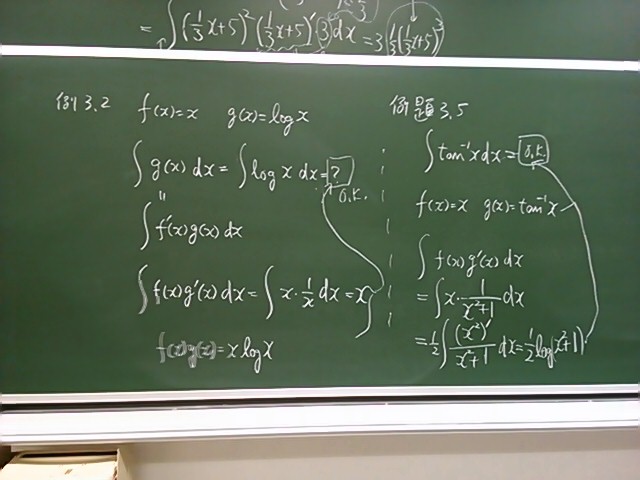 = ∫(1/3 x+5)² (1/3 x+5)′ ③ dx = 3 1/3 (1/3 x+5)³
例3.2 f(x)=x g(x)=log x
∫ g(x) dx = ∫ log x dx = ?
O.K.
∫ f′(x) g(x) dx
∫ f(x) g′(x) dx = ∫ x · 1/x dx = x
f(x)g(x) = x log x
例題3.5
∫ tan⁻¹x dx = O.K.
f(x)=x g(x)=tan⁻¹x
∫ f(x) g′(x) dx
= ∫ x · 1/(x²+1) dx
= 1/2 ∫ (x²)′/(x²+1) dx = 1/2 log(x²+1)